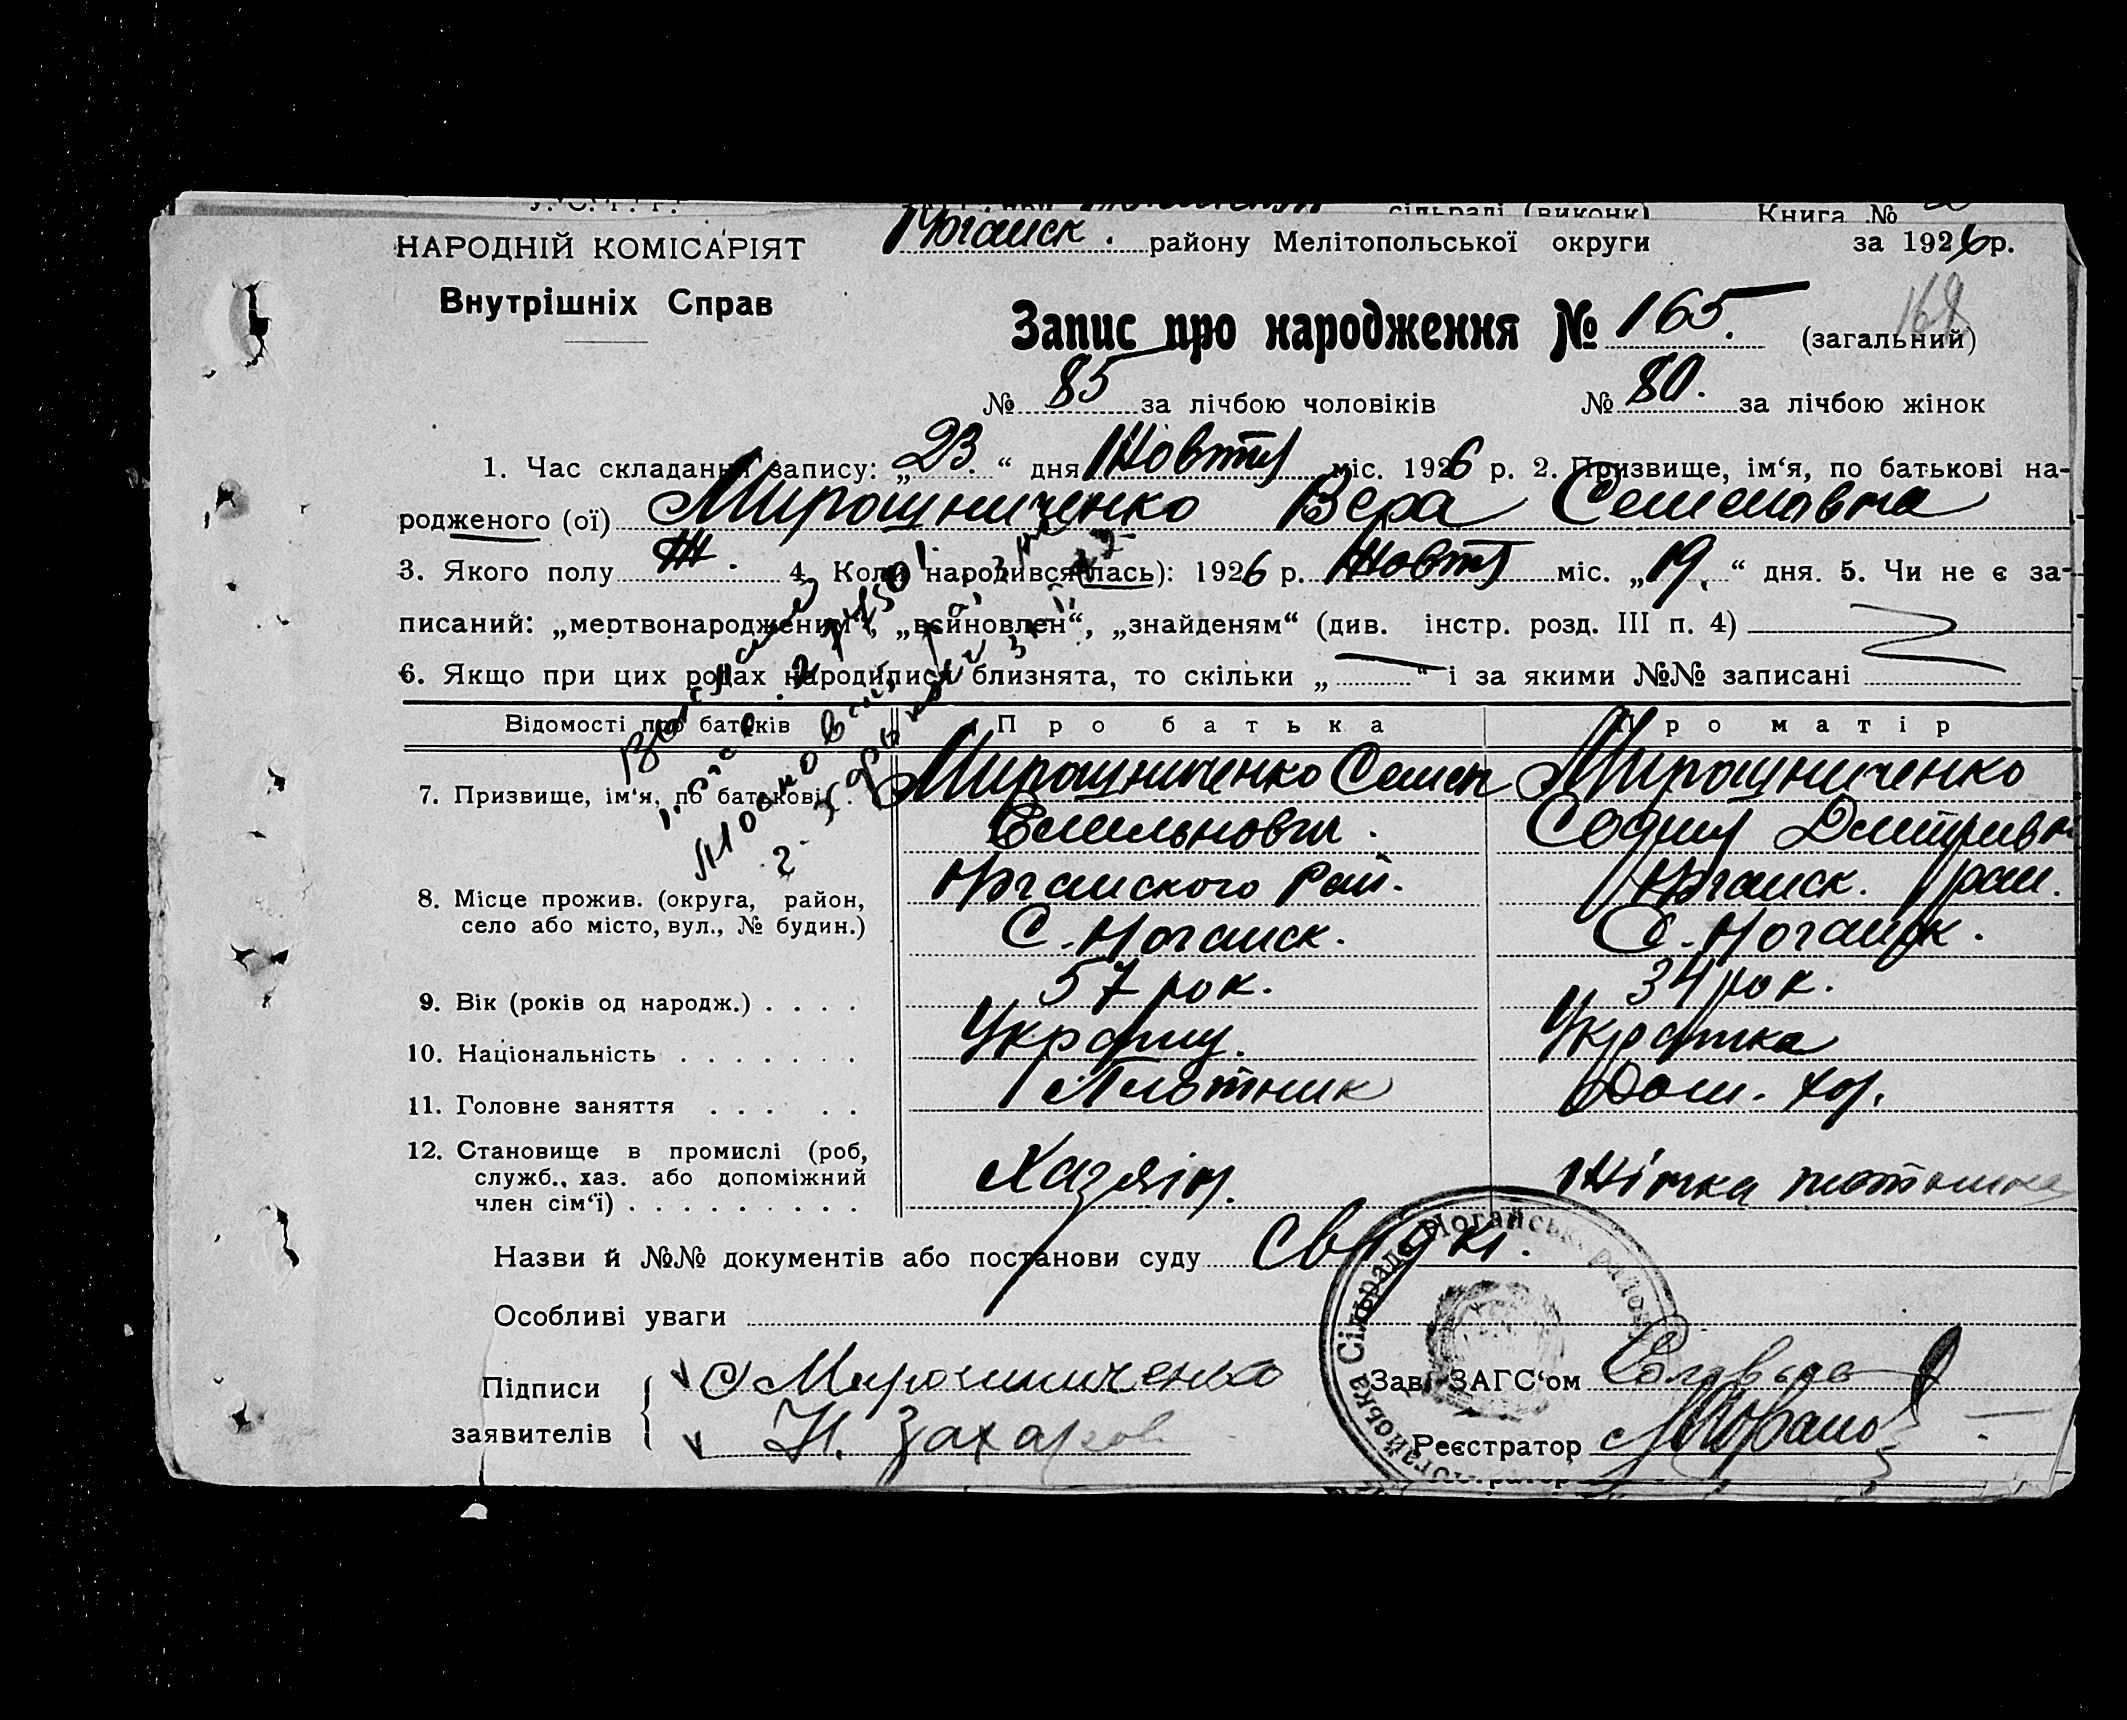 НАРОДНІЙ КОМІСАРІЯТ
Внутрішніх Справ
сільраді (виконк) Книга №
Ногайск. району Мелітопольської округи за 1926 р.
168
Запис про народження № 165. (загальний)
№ 85 за лічбою чоловіків № 80. за лічбою жінок
1. Час складання запису: „23.“ дня Жовтня міс. 1926 р. 2. Призвище, ім‘я, по батькові на-
родженого (ої) Мирошниченко Вера Семеновна
3. Якого полу Ж. 4. Коли народився (лась): 1926 р. Жовтня міс. „19.“ дня. 5. Чи не є за-
писаний: „мертвонародженим“, „всиновлен“, „знайденям“ (див. інстр. розд. III п. 4)
6. Якщо при цих родах народилися близнята, то скільки „ “ і за якими №№ записані
Відомості про батьків Про батька Про матір
7. Призвище, ім‘я, по батькові . . Мирошниченко Семен Мирошниченко
Емельнович. София Дмитривн
8. Місце прожив. (округа, район, село або місто, вул., № будин.) Ногайского Рай. Ногайск. рай.
С. Ногайск. С. Ногайск.
9. Вік (років од народж.) . . . . 57 рок. 34 рок.
10. Національність . . . . . . . Украінц. Украінка
11. Головне заняття . . . . . Плотник Дом. хоз.
12. Становище в промислі (роб, служб., хаз. або допоміжний член сім‘ї) . . . . . . . . . Хазяін. Жінка плотника
Назви й №№ документів або постанови суду Свідкі.
Особливі уваги
Підписи заявителів
С Мирошниченко
Н. Захаров
Зав. ЗАГС‘ом
Реєстратор
Ногайська Сільрада Ногайськ. району